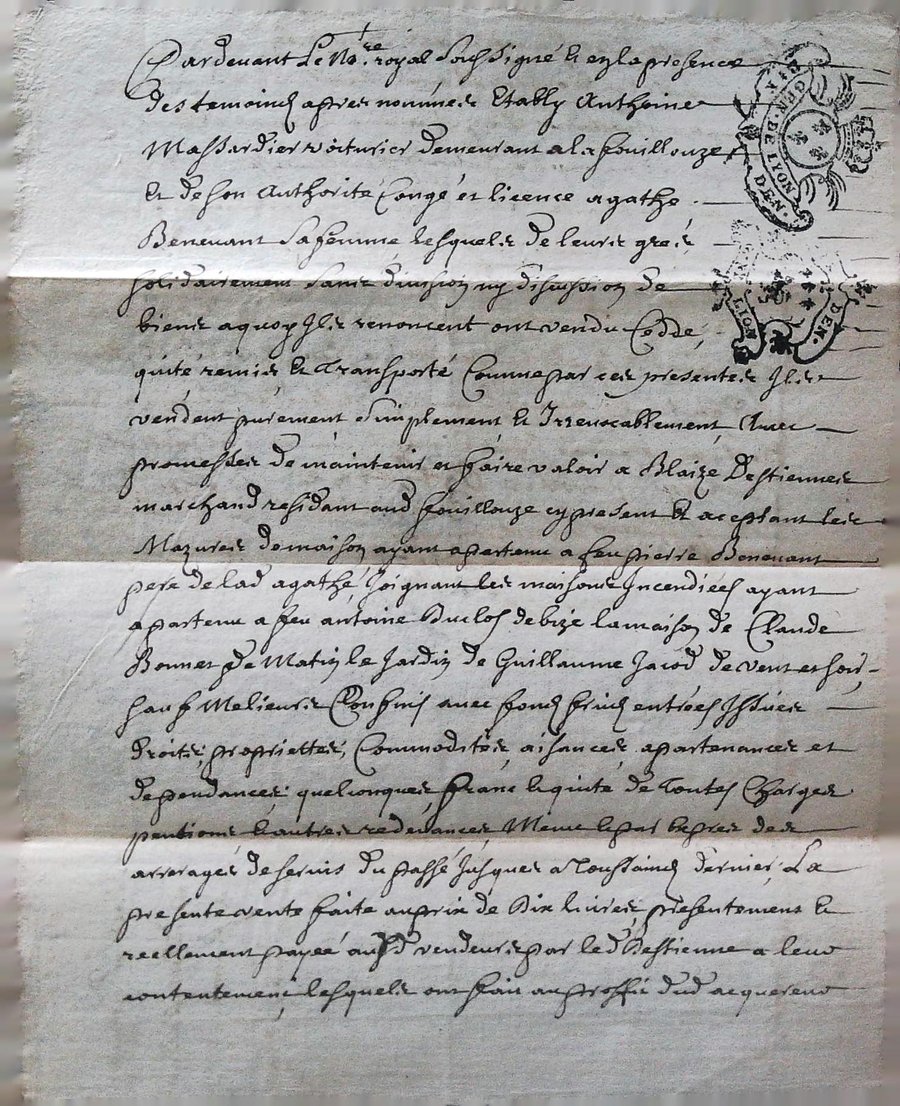 Pardevant Le No.re royal Soussigné & en la presence
des temoins apres nommes Estably Anthoine
Massardier voiturier demeurant a la fouillouze
Et de son Authorité Congé et licence agathe
Benevant Sa femme, lesquels de leurs grés
solidairement Sans division ny discussion de
biens a quoy Ils renoncent ont vendu Cedde,
quité remis & Transporté Comme par ces presentes Ils
vendent purement simplement & Irrevocablement, Avec
promesses de maintenir et faire valoir a Blaize Destiennes
marchand residant aud fouillouze cy present & aceptant les
Mazures de maison ayant apartenu a feu pierre Benevant
pere de lad agathe, Joignant les maisons Incendiées ayant
apartenu a feu antoine Duclos de bize la maison de Claude
Bonnet de Matin le Jardin de Guillaume Jacod de vent et soir,
sauf Melieurs Confins avec fond fruid entrées Issües
droits, proprietes, Commodités, aisances, apartenances et
dependances quelconques, franc & quité de Toutes Charges
pentions & autres redevances, Meme
arrerages de servis du passé Jusques a Toussaind dernier, La
presente vente faite au prix de Dix livres, presentement &
reellement payée ausd vendeurs par led Destienne a leur
contentement, lesquels ont fait au proffit dud acquereur
GEN. DE LYON
DEN.
LION
DEN.